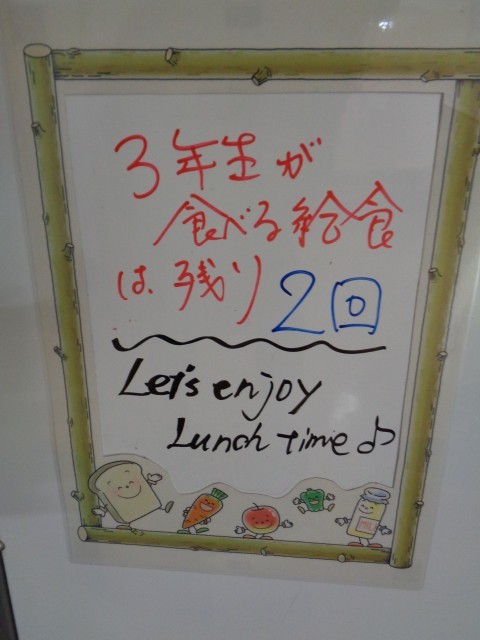 3年生が
食べる給食
は、残り 2回
Let's enjoy
Lunch time♪